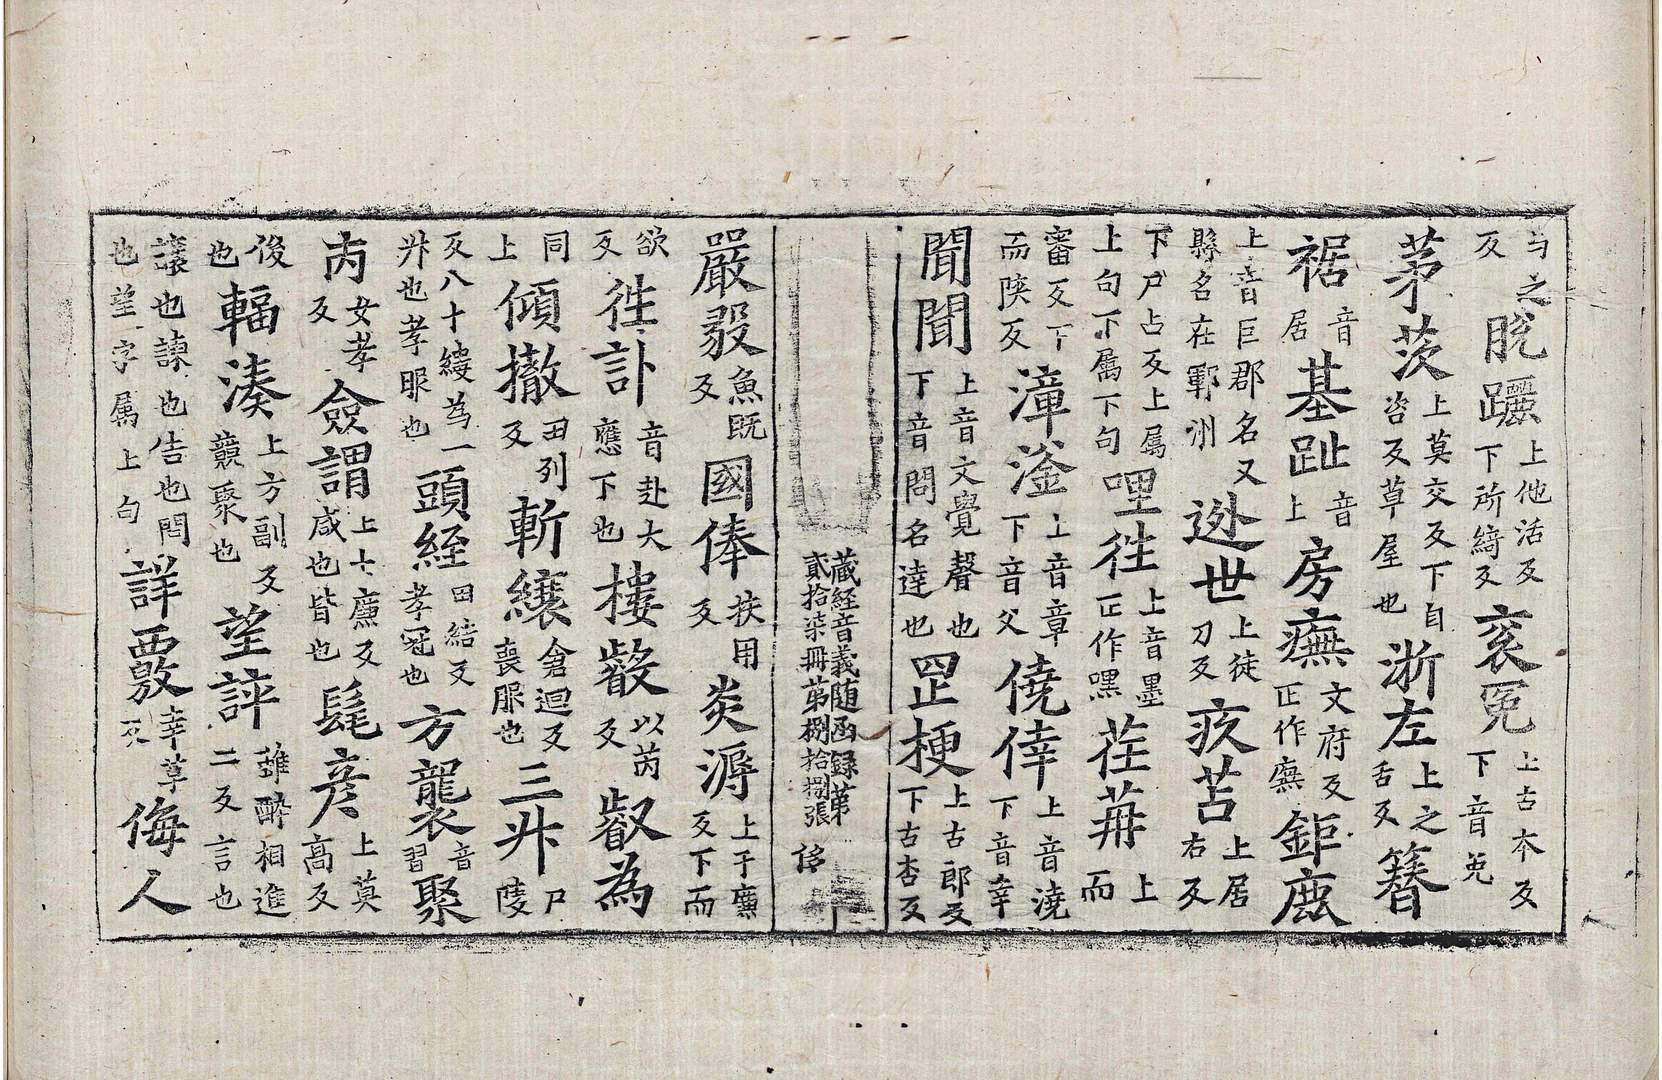 与之反脫躧上他活反下所綺反衮冕上古本反下音免
茅茨上莫交反下自咨反草屋也浙左上之舌反簪
裾音居基趾音上房廡文府反正作廡鉅鹿
上音巨郡名又縣名在鄆州逊世上徒刀反疚苫上居右反
下尸占反上屬上句下属下句哩徃上音墨正作嘿荏苒上而
審反下而陝反漳滏上音章下音父僥倖上音澆下音幸
聞聞上音文覺聲也下音問名逹也罡梗上古郎反下古杏反
藏経音義随函録苐貳拾柒冊苐捌拾捌張
嚴毅魚既反國俸扶用反炎溽上于廉反下而
欲反徃訃音赴大應下也樓㲊以芮反叡為
同上傾撤田列反斬縗倉迴反喪服也三升尸陵
反八十縷為一升也孝服也頭絰田結反孝冠也方襲音習聚
芮女孝反僉謂上七廉反咸也皆也髦彦上莫高反
後也輻湊上方副反競聚也望評雖酔相進二反言也
讓也諫也告也問也望字属上句詳覈幸革反侮人